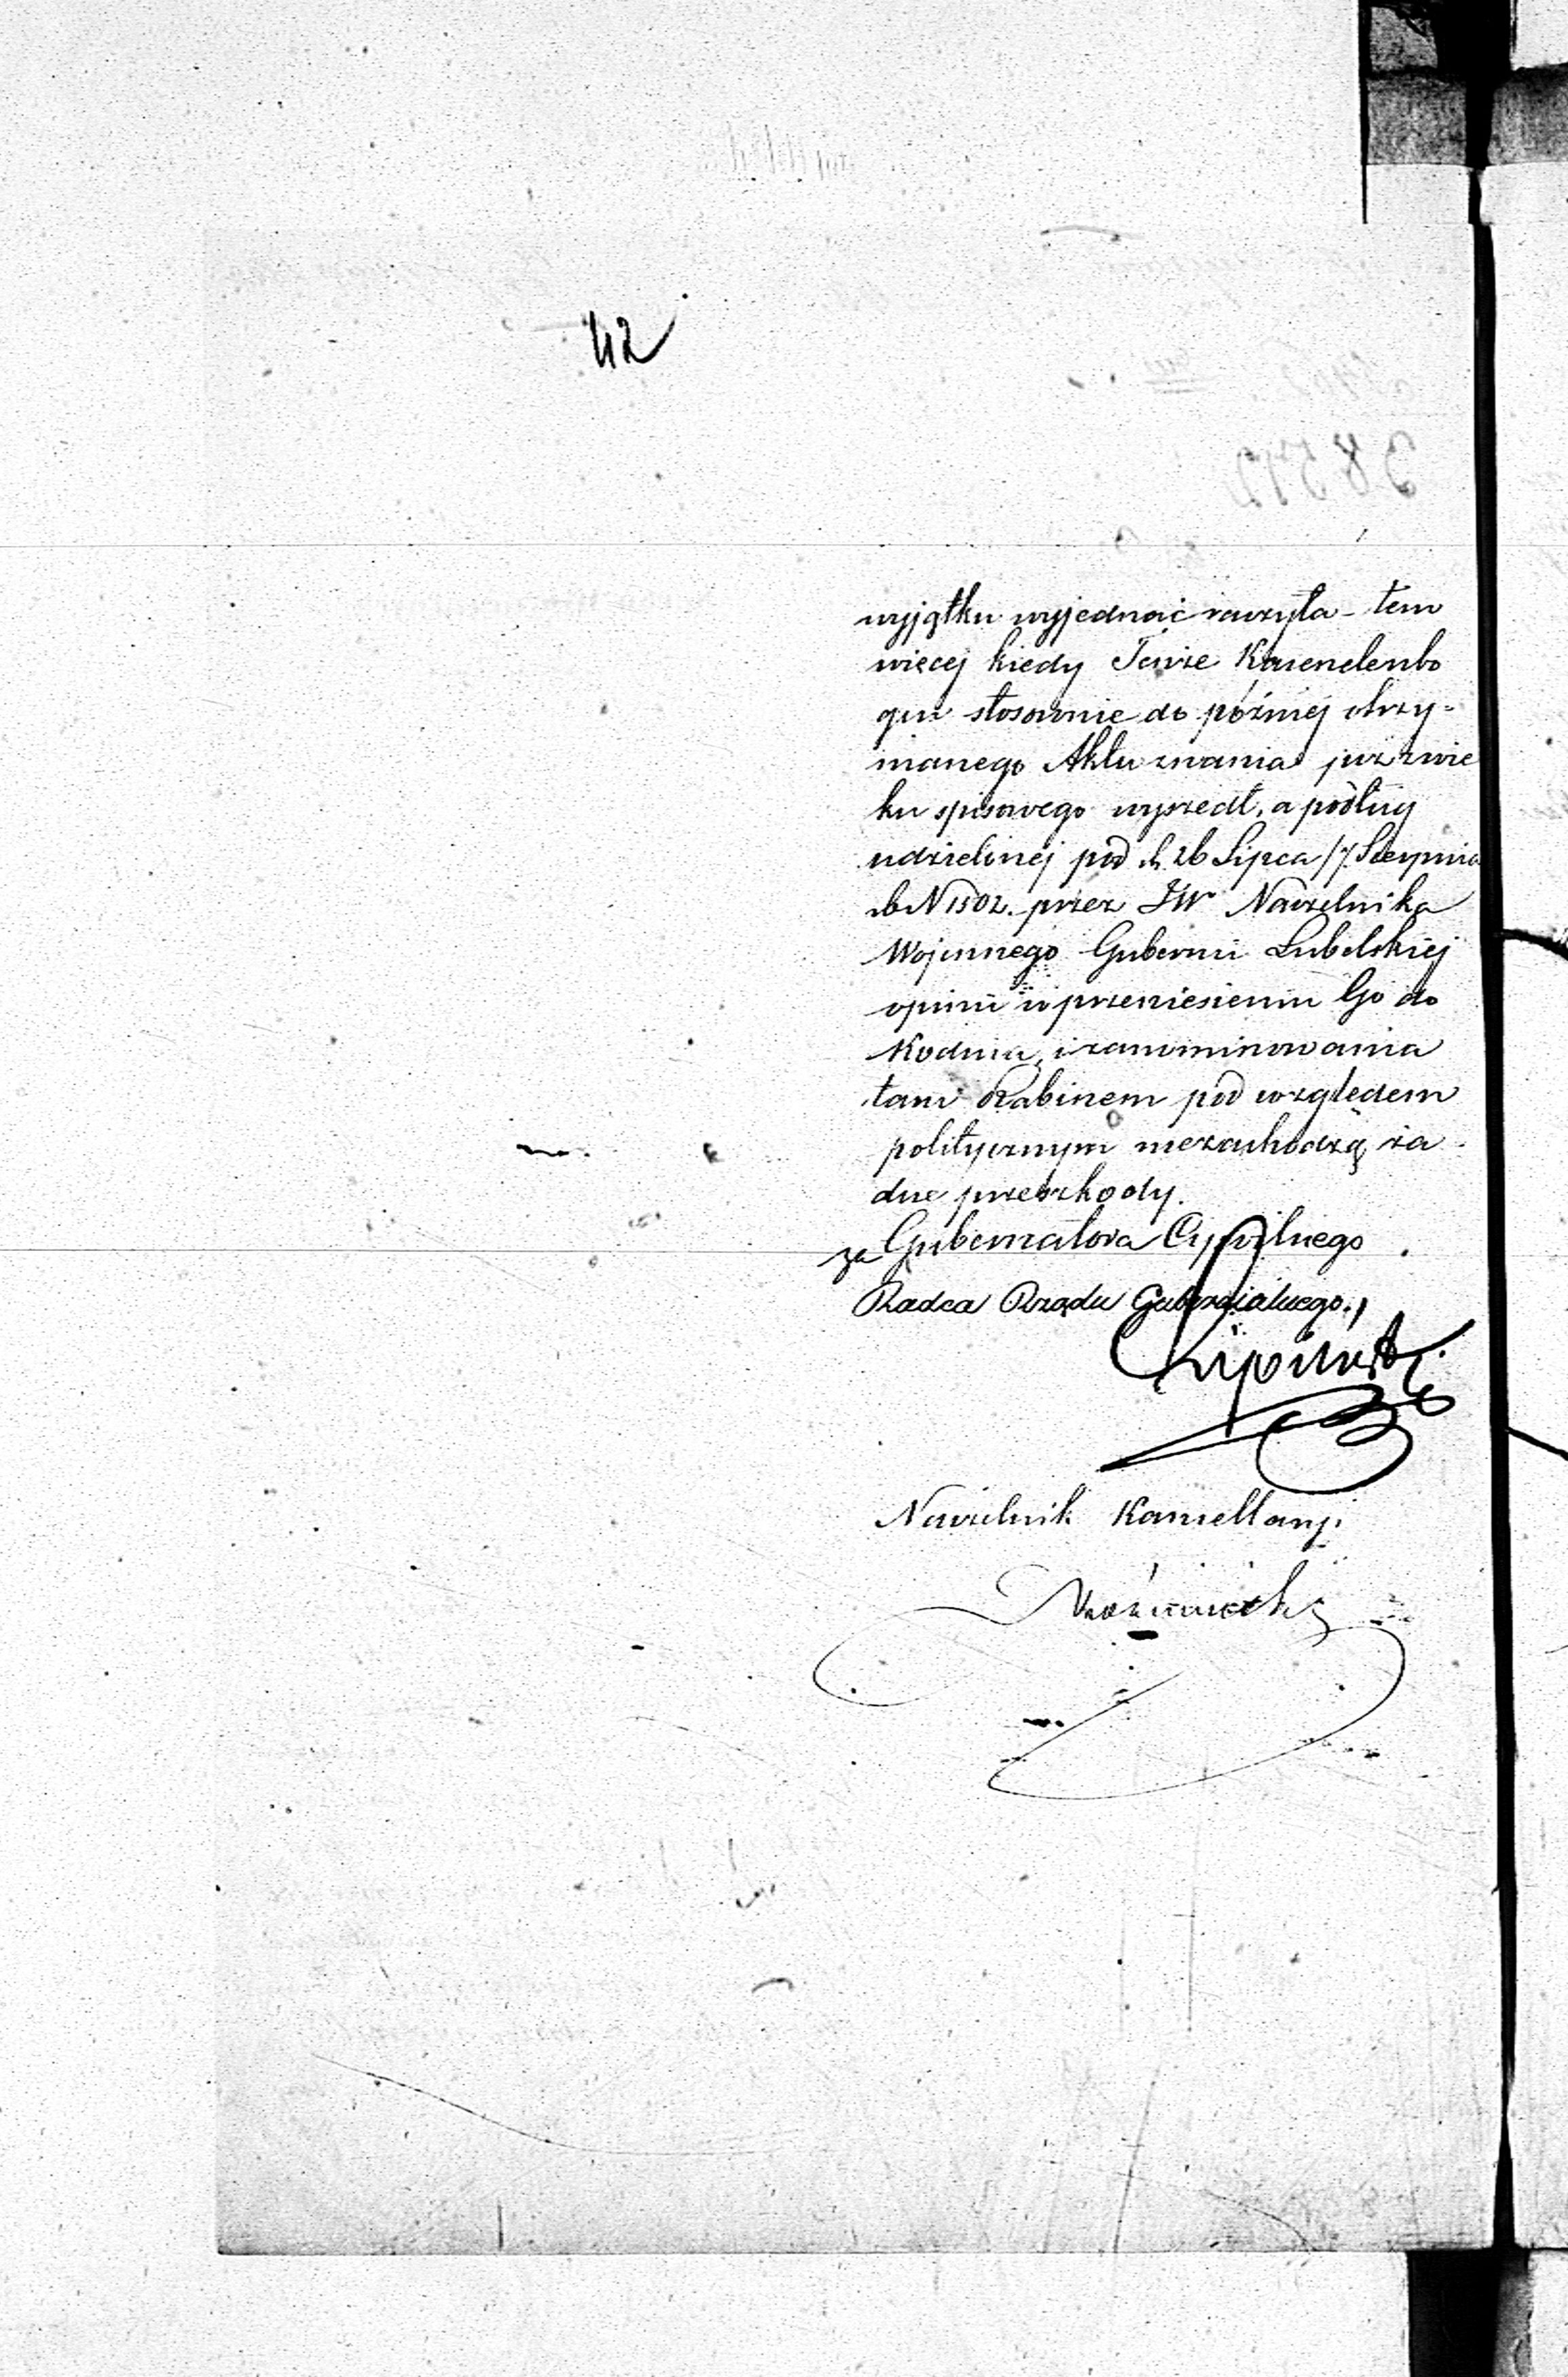 42
wyjątku wyjednać raczyła – tem
więcej kiedy Tewie Kacenelenbo
gen stosownie do później otrzy=
manego Aktu znania już z wie
ku spisowego wyszedł, a podług
udzielonej pod d. 26 Lipca/7 Sierpnia
rb N 1502. przez JW Naczelnika
Wojennego Gubernii Lubelskiej
opinii w przeniesieniu Go do
Kodnia, i zanominowania
tam Rabinem pod względem
politycznym niezachodzą ża
dne przeszkody.
za Gubernatora Cywilnego
Radca Rządu Gubernialnego.,
Naczelnik Kancellaryi